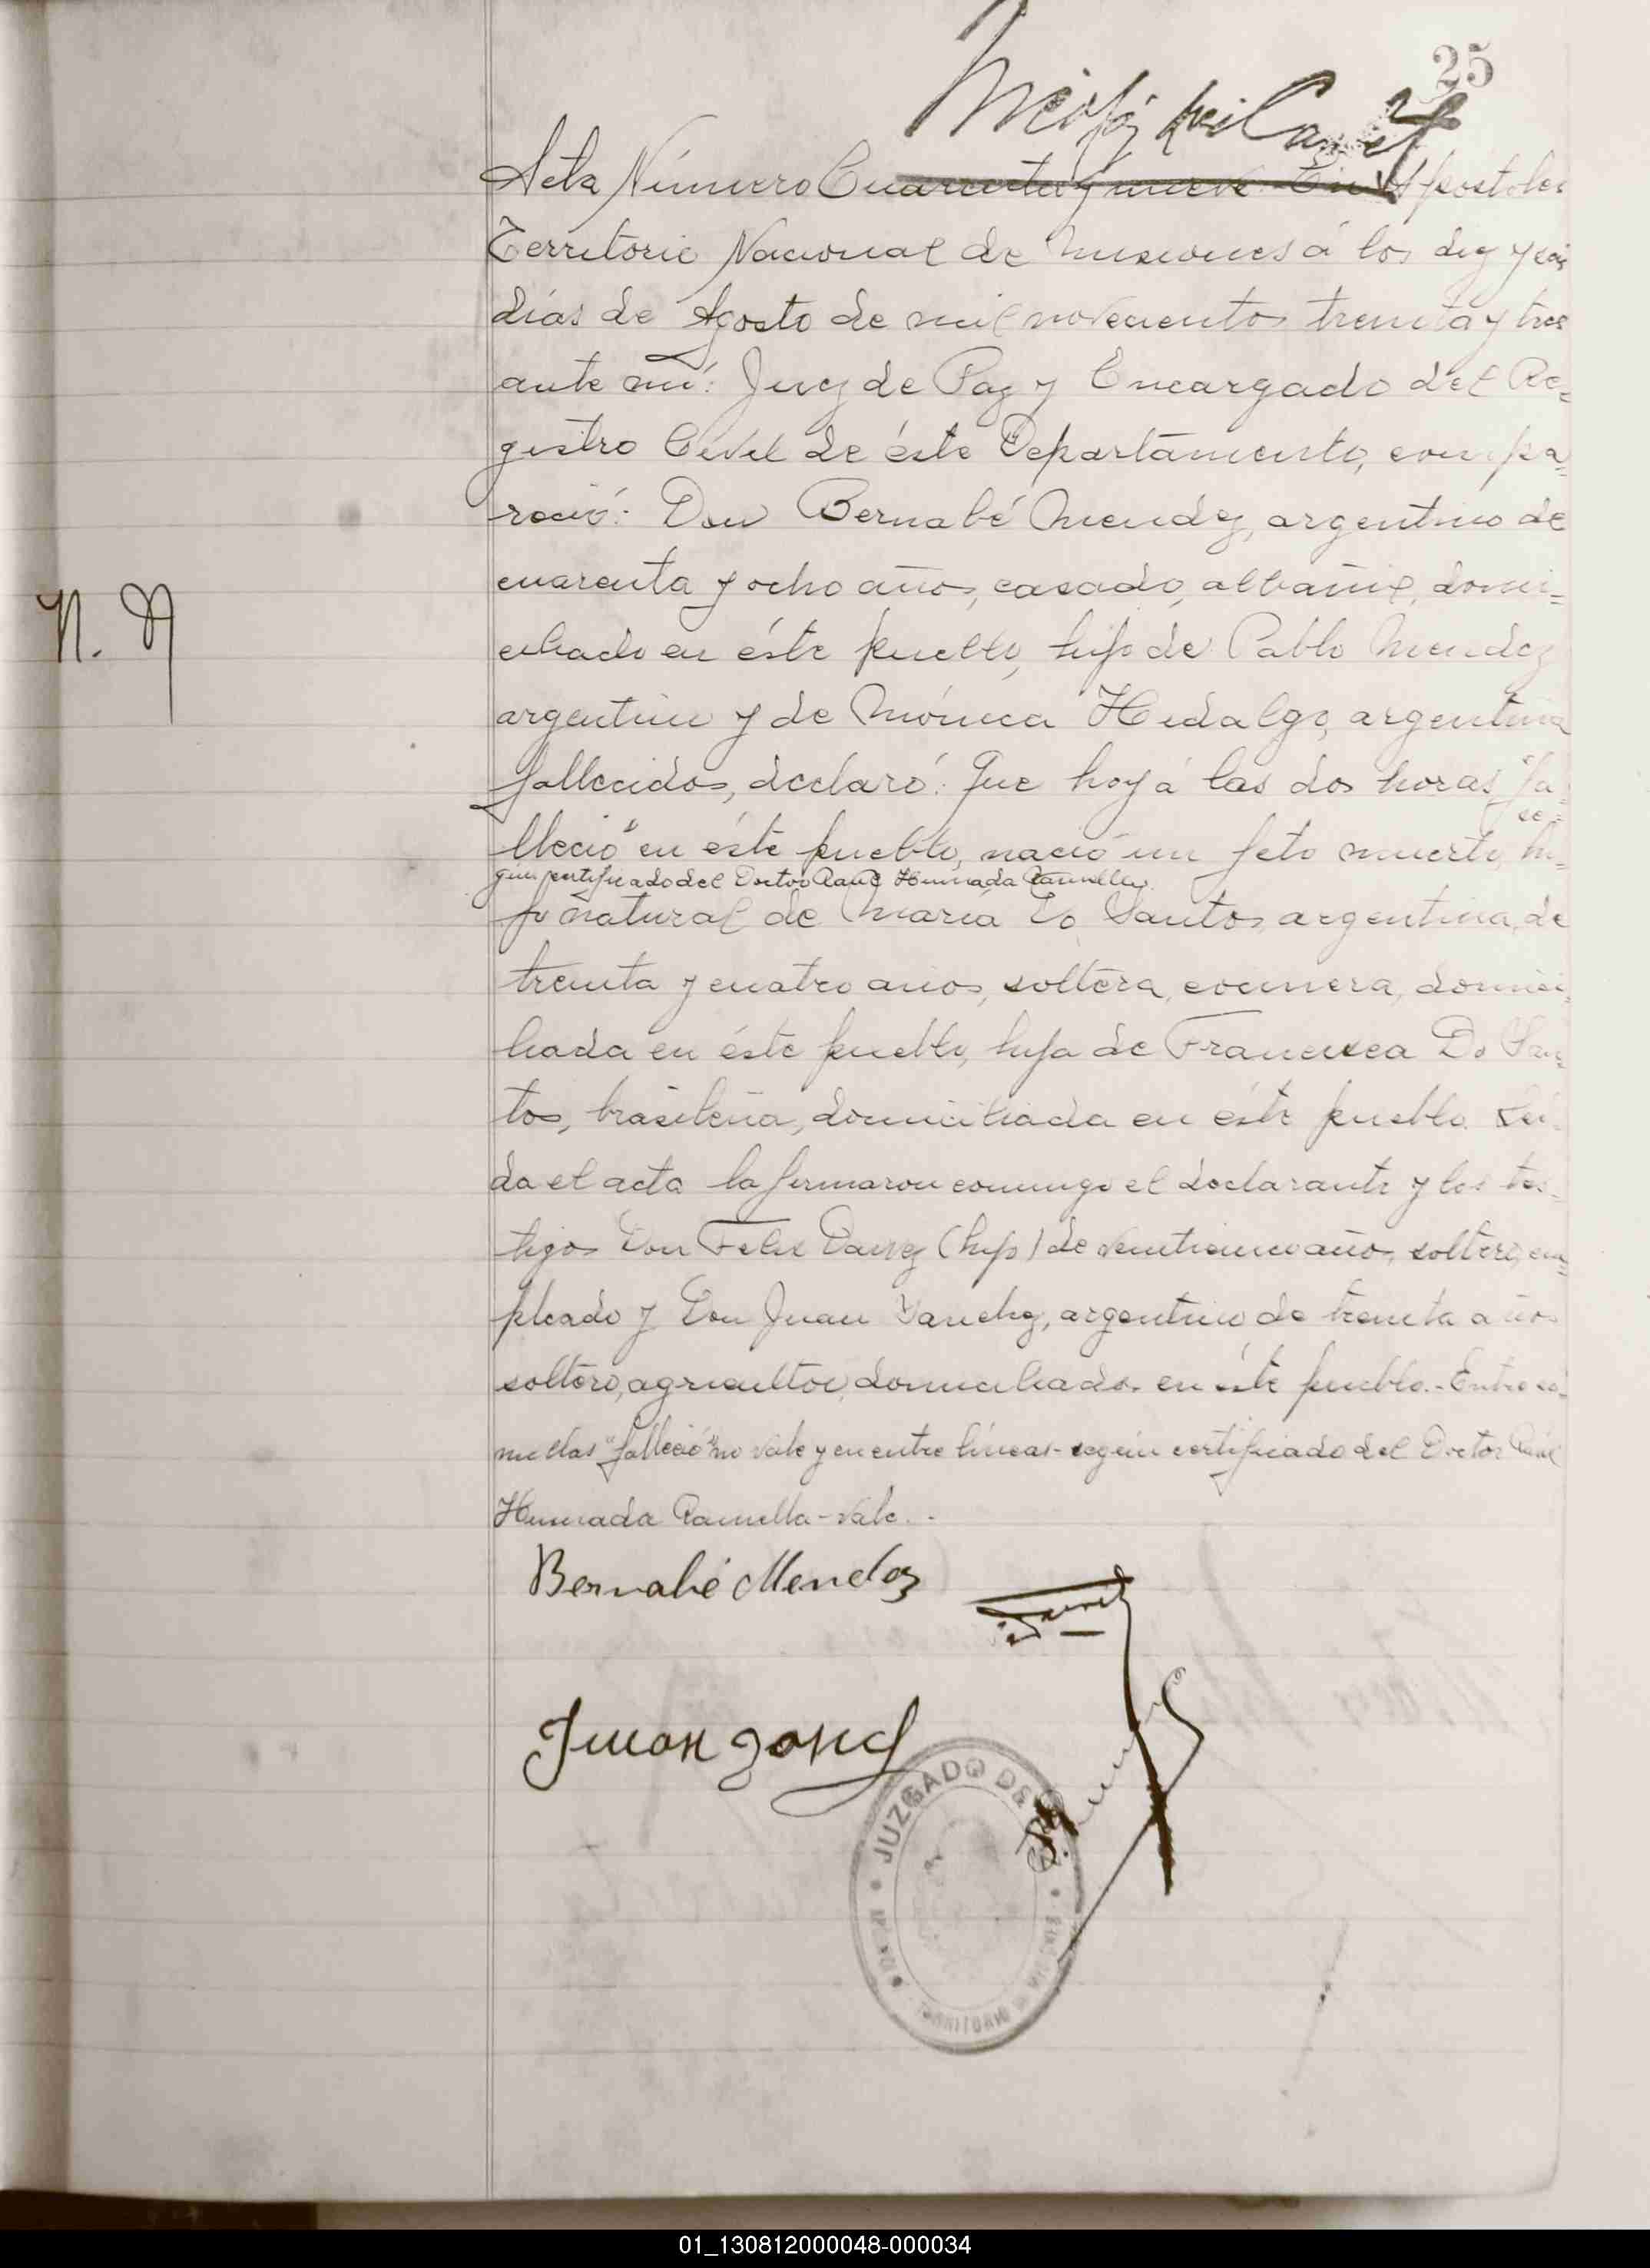 25
Acta Número Cuarenta y nueve. En Apóstoles
Territorio Nacional de Misiones á los diez y seis
días de Agosto de mil novecientos treinta y tres
ante mí: Juez de Paz y Encargado del Re=
gistro Civil de éste Departamento, compa=
reció: Don Bernabé Mendez, argentino de
cuarenta y ocho años, casado, albañil, domi=
ciliado en éste pueblo, hijo de Pablo Mendez
argentino y de Mónica Hidalgo, argentina
fallecidos, declaró: Que hoy á las dos horas "fa=
lleció" en éste pueblo, nació un feto muerto, se= hi=
gún certificado del Doctor Raúl Humada Ramella
jo natural de María Do Santos, argentina, de
treinta y cuatro años, soltera, cocinera, domici=
liada en éste pueblo, hija de Francisca Do San=
tos, brasileña, domiciliada en éste pueblo. Leí=
da el acta la firmaron conmigo el declarante y los tes=
tigos Don Felix (hijo) de veinticinco años, soltero, em=
pleado y Don Juan Sanchez, argentino de treinta años
soltero, agricultor, domiciliados en éste pueblo.- Entre co=
millas "falleció" no vale y en entre líneas- según certificado del Doctor Raúl
Humada Ramella - Vale.-
N. N
Bernabé Mendez
Juan
JUZGADO DE
TERRITORIO
01_130812000048-000034